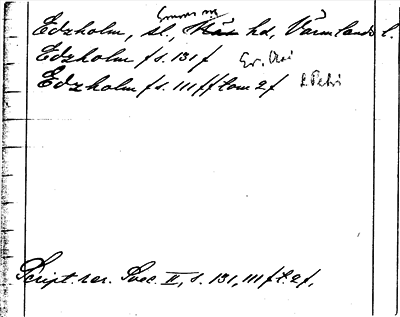 Edzholm, sl, Grums hd, Värmlands l.
Edzholm f s. 131 f Er. Olai
Edzholm f s. 111 ff tom 2 f L Petri
Script. rer. Svec. II, s. 131, 111 f t. 2 f,